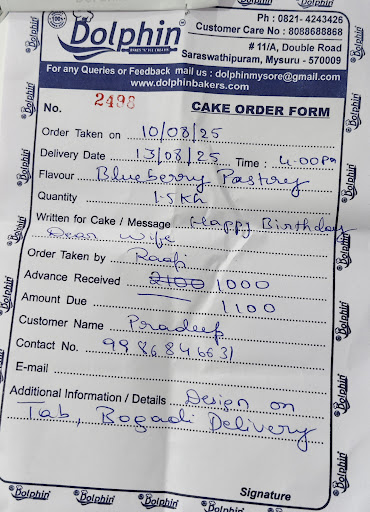 100%
Dolphin
BAKE 'N' ICE CREAMS
Ph : 0821- 4243426
Customer Care No : 8088688868
# 11/A, Double Road
Saraswathipuram, Mysuru - 570009
For any Queries or Feedback mail us : dolphinmysore@gmail.com
www.dolphinbakers.com
No. 2498 CAKE ORDER FORM
Order Taken on 10/08/25
Delivery Date 13/08/25 Time : 4.00PM
Flavour Blueberry Pastrey
Quantity 1.5KG
Written for Cake / Message Happy Birthday
Dear Wife
Order Taken by
Advance Received 2100 1000
Amount Due 1100
Customer Name Pradeep
Contact No. 9986846631
E-mail
Additional Information / Details Design on
Tab, Bogadi Delivery
Signature
Dolphin Dolphin Dolphin Dolphin Dolphin